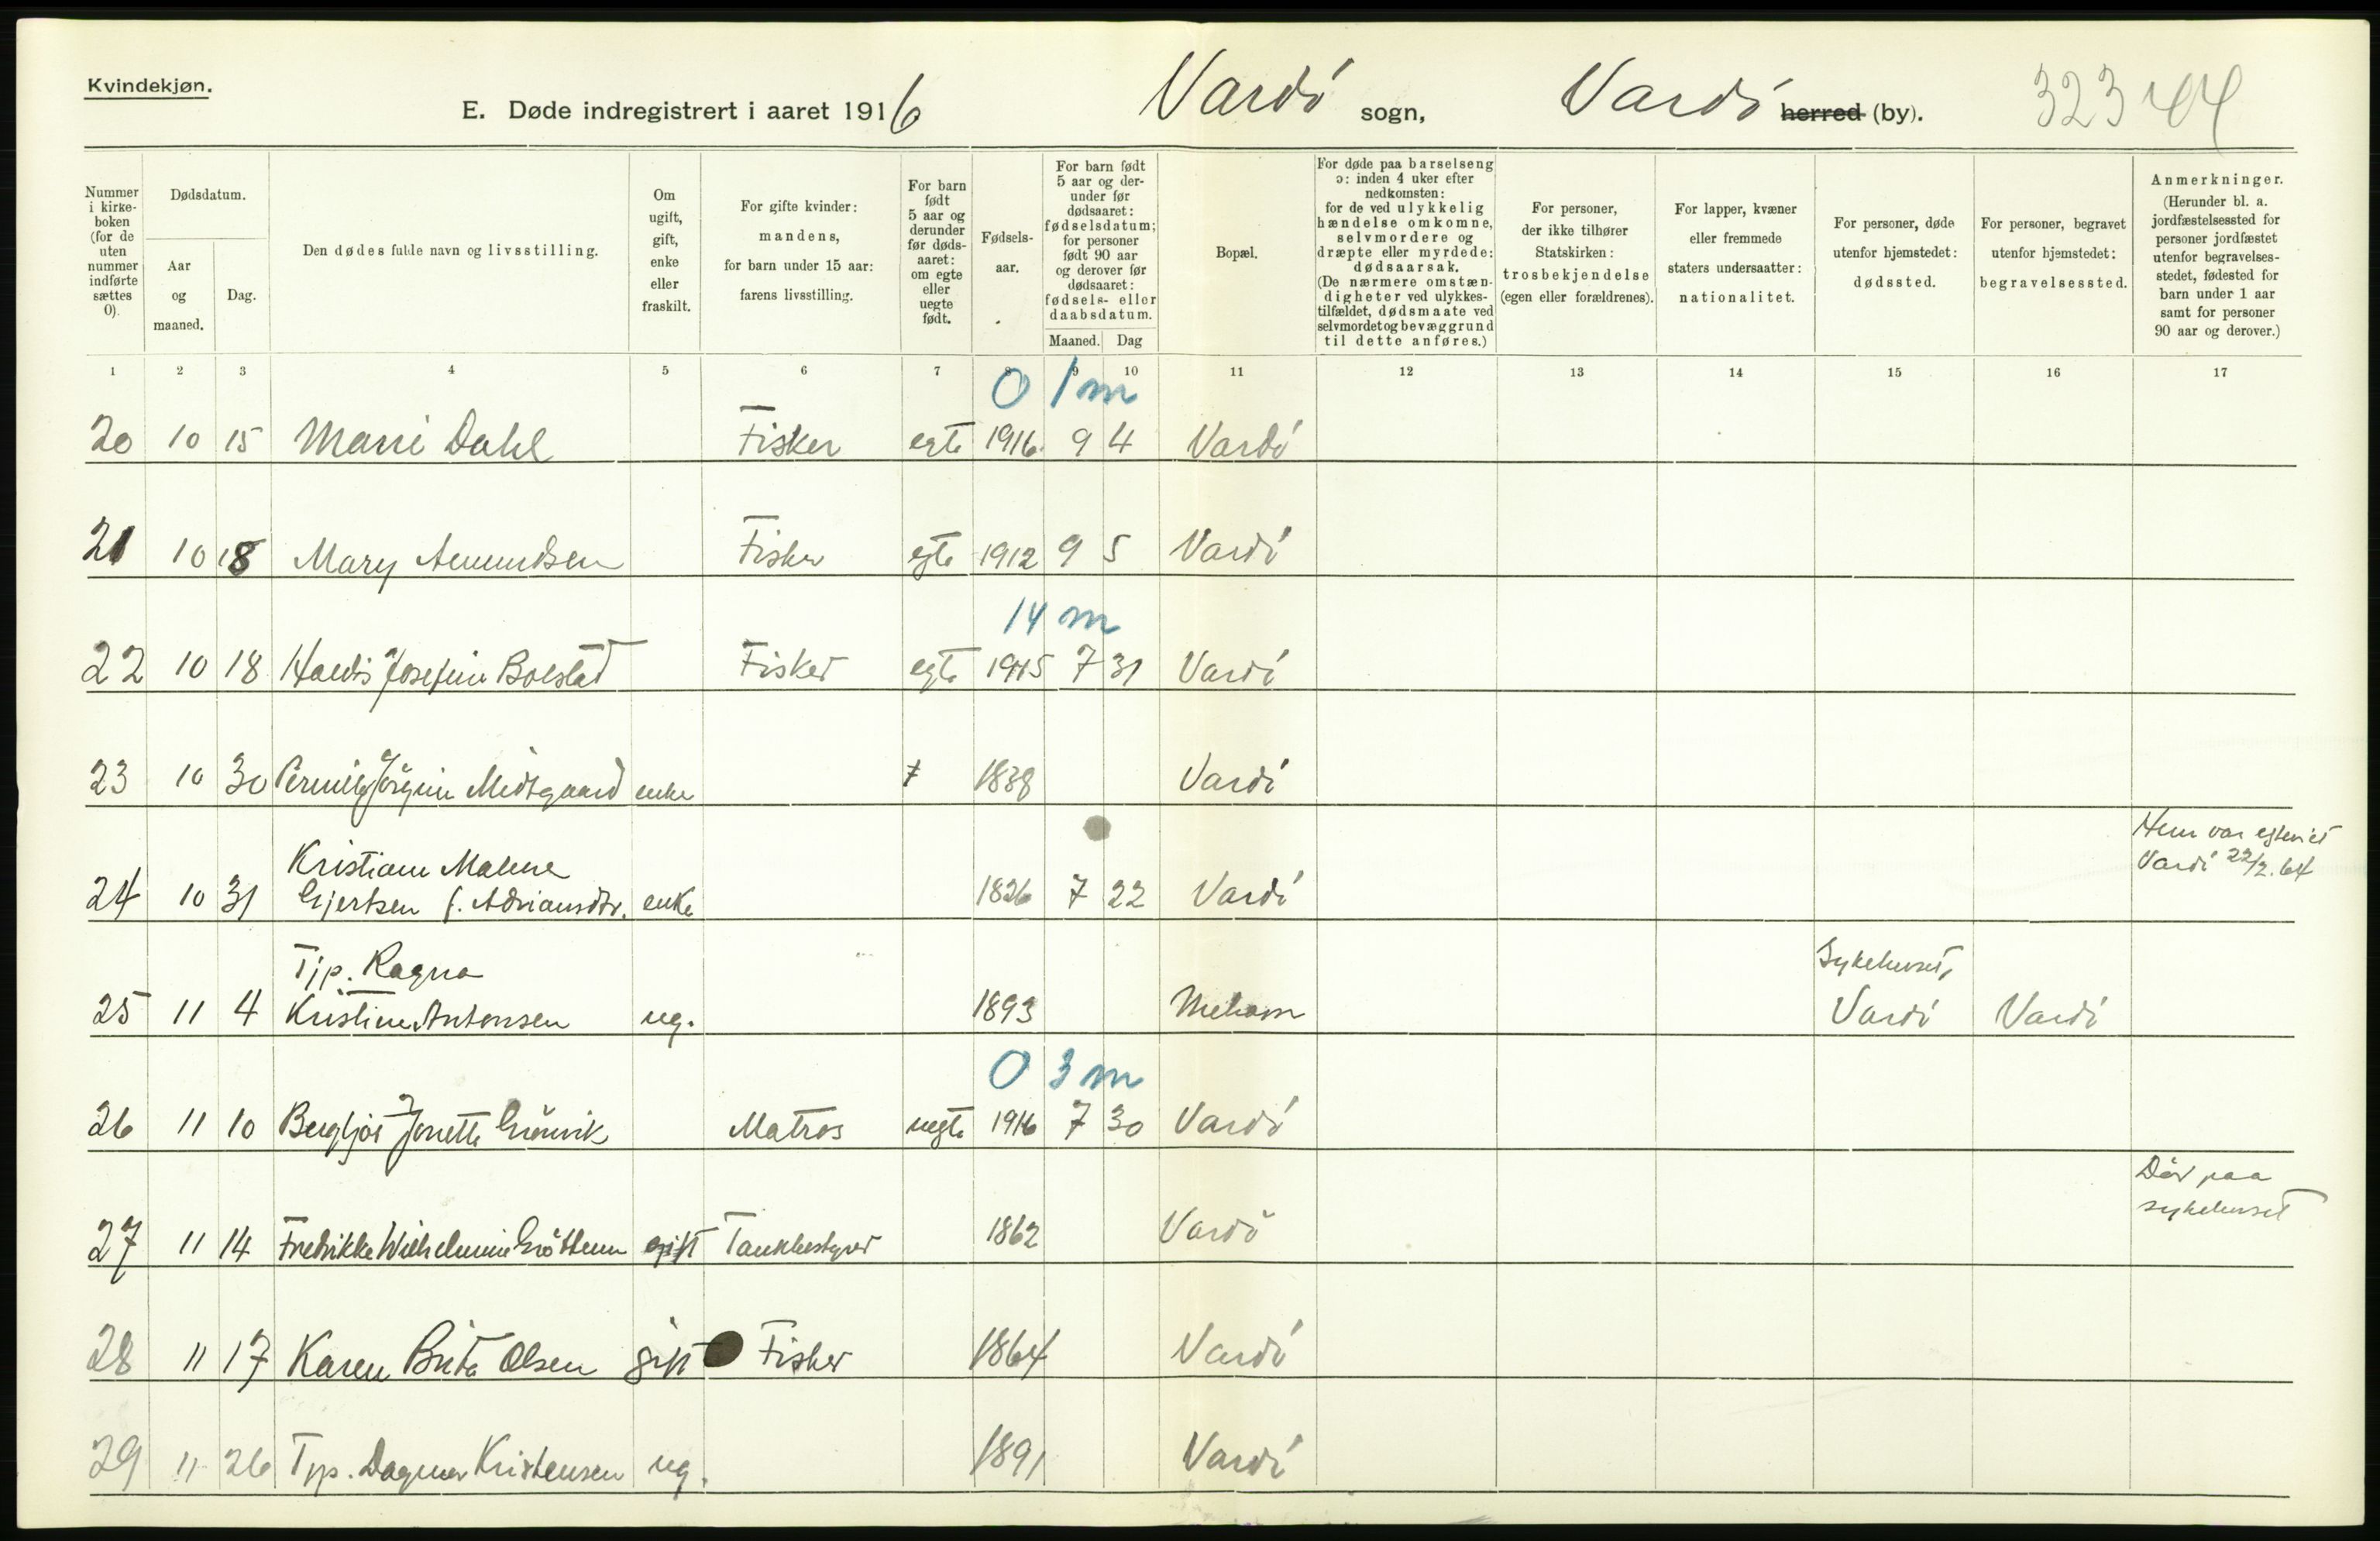 Kvindekjøn.
E. Døde indregistrert i aaret 1916 Vardö sogn, Vardö herred (by). 323 44
Nummer i kirke-boken (for de uten nummer indførte sættes 0).
Dødsdatum.
Aar og maaned.
Dag.
Den dødes fulde navn og livsstilling.
Om ugift, gift, enke eller fraskilt.
For gifte kvinder: mandens, for barn under 15 aar: farens livsstilling.
For barn født 5 aar og derunder før døds-aaret: om egte eller uegte født.
Fødsels-aar.
For barn født 5 aar og der-under før dødsaaret: fødselsdatum; for personer født 90 aar og derover før dødsaaret: fødsels- eller daabsdatum.
Maaned. Dag
Bopæl.
For døde paa barselseng ɔ: inden 4 uker efter nedkomsten: for de ved ulykkelig hændelse omkomne, selvmordere og dræpte eller myrdede: dødsaarsak. (De nærmere omstæn-digheter ved ulykkes-tilfældet, dødsmaate ved selvmordet og bevæggrund til dette anføres.)
For personer, der ikke tilhører Statskirken: trosbekjendelse (egen eller forældrenes).
For lapper, kvæner eller fremmede staters undersaatter: nationalitet.
For personer, døde utenfor hjemstedet: dødssted.
For personer, begravet utenfor hjemstedet: begravelsessted.
Anmerkninger. (Herunder bl. a. jordfæstelsessted for personer jordfæstet utenfor begravelses-stedet, fødested for barn under 1 aar samt for personer 90 aar og derover.)
1 2 3 4 5 6 7 8 9 10 11 12 13 14 15 16 17
0 1 m
20 10 15 Marie Dahl Fisker egte 1916 9 4 Vardö
21 10 18 Mary Amundsen Fisker egte 1912 9 5 Vardö
14 m
22 10 18 Josefine Bolstad Fisker egte 1915 7 31 Vardö
23 10 30 Midtgaard enke 1838 Vardö
Kristiane Malene
Hun var
Vardö 22/2. 64
24 10 31 Gjertsen f. Adriansdtr. enke 1826 7 22 Vardö
Tjp. Ragna
Sykehuset,
25 11 4 Kristine Antonsen ug. 1893 Mehavn Vardö Vardö
0 3 m
26 11 10 Bergljot Jonette Grönvik Matros uegte 1916 7 30 Vardö
Död paa
sykehuset
27 11 14 Fredrikke Wilhelmine gift Tankbestyrer 1862 Vardö
28 11 17 Karen Brita Olsen gift Fisker 1864 Vardö
29 11 26 Tjp. Dagmar Kristensen ug. 1891 Vardö